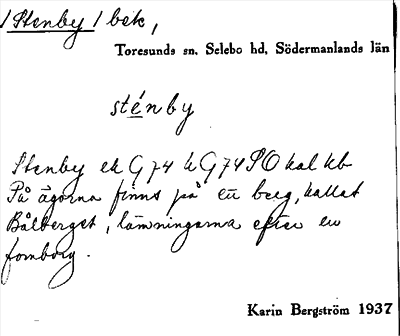 /Stenby/ bek,
Toresunds sn, Selebo hd, Södermanlands län
sténby
Stenby ek G 74 h G 74 SO kal kb
På ägorna finns på en berg, kallat
Bålberget, lämningarna efter en
fornborg.
Karin Bergström 1937